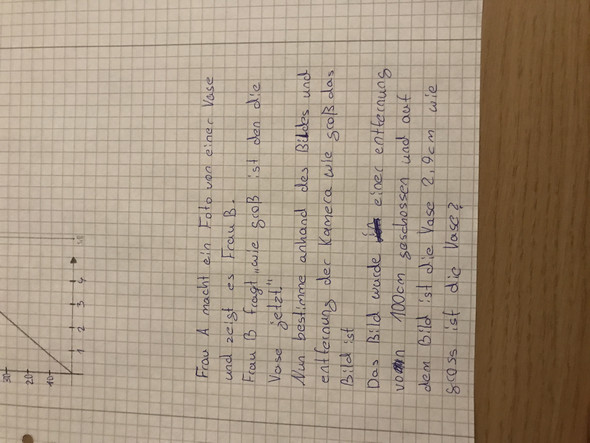 Frau A macht ein Foto von einer Vase
und zeigt es Frau B.
Frau B fragt „wie groß ist den die
Vase jetzt."
Nun bestimme anhand des Bildes und
entfernung der Kamera wie groß das
Bild ist
Das Bild wurde einer entfernung
von 100cm geschossen und auf
dem Bild ist die Vase 2,9cm wie
gross ist die Vase?
30
20
10
1 2 3 4